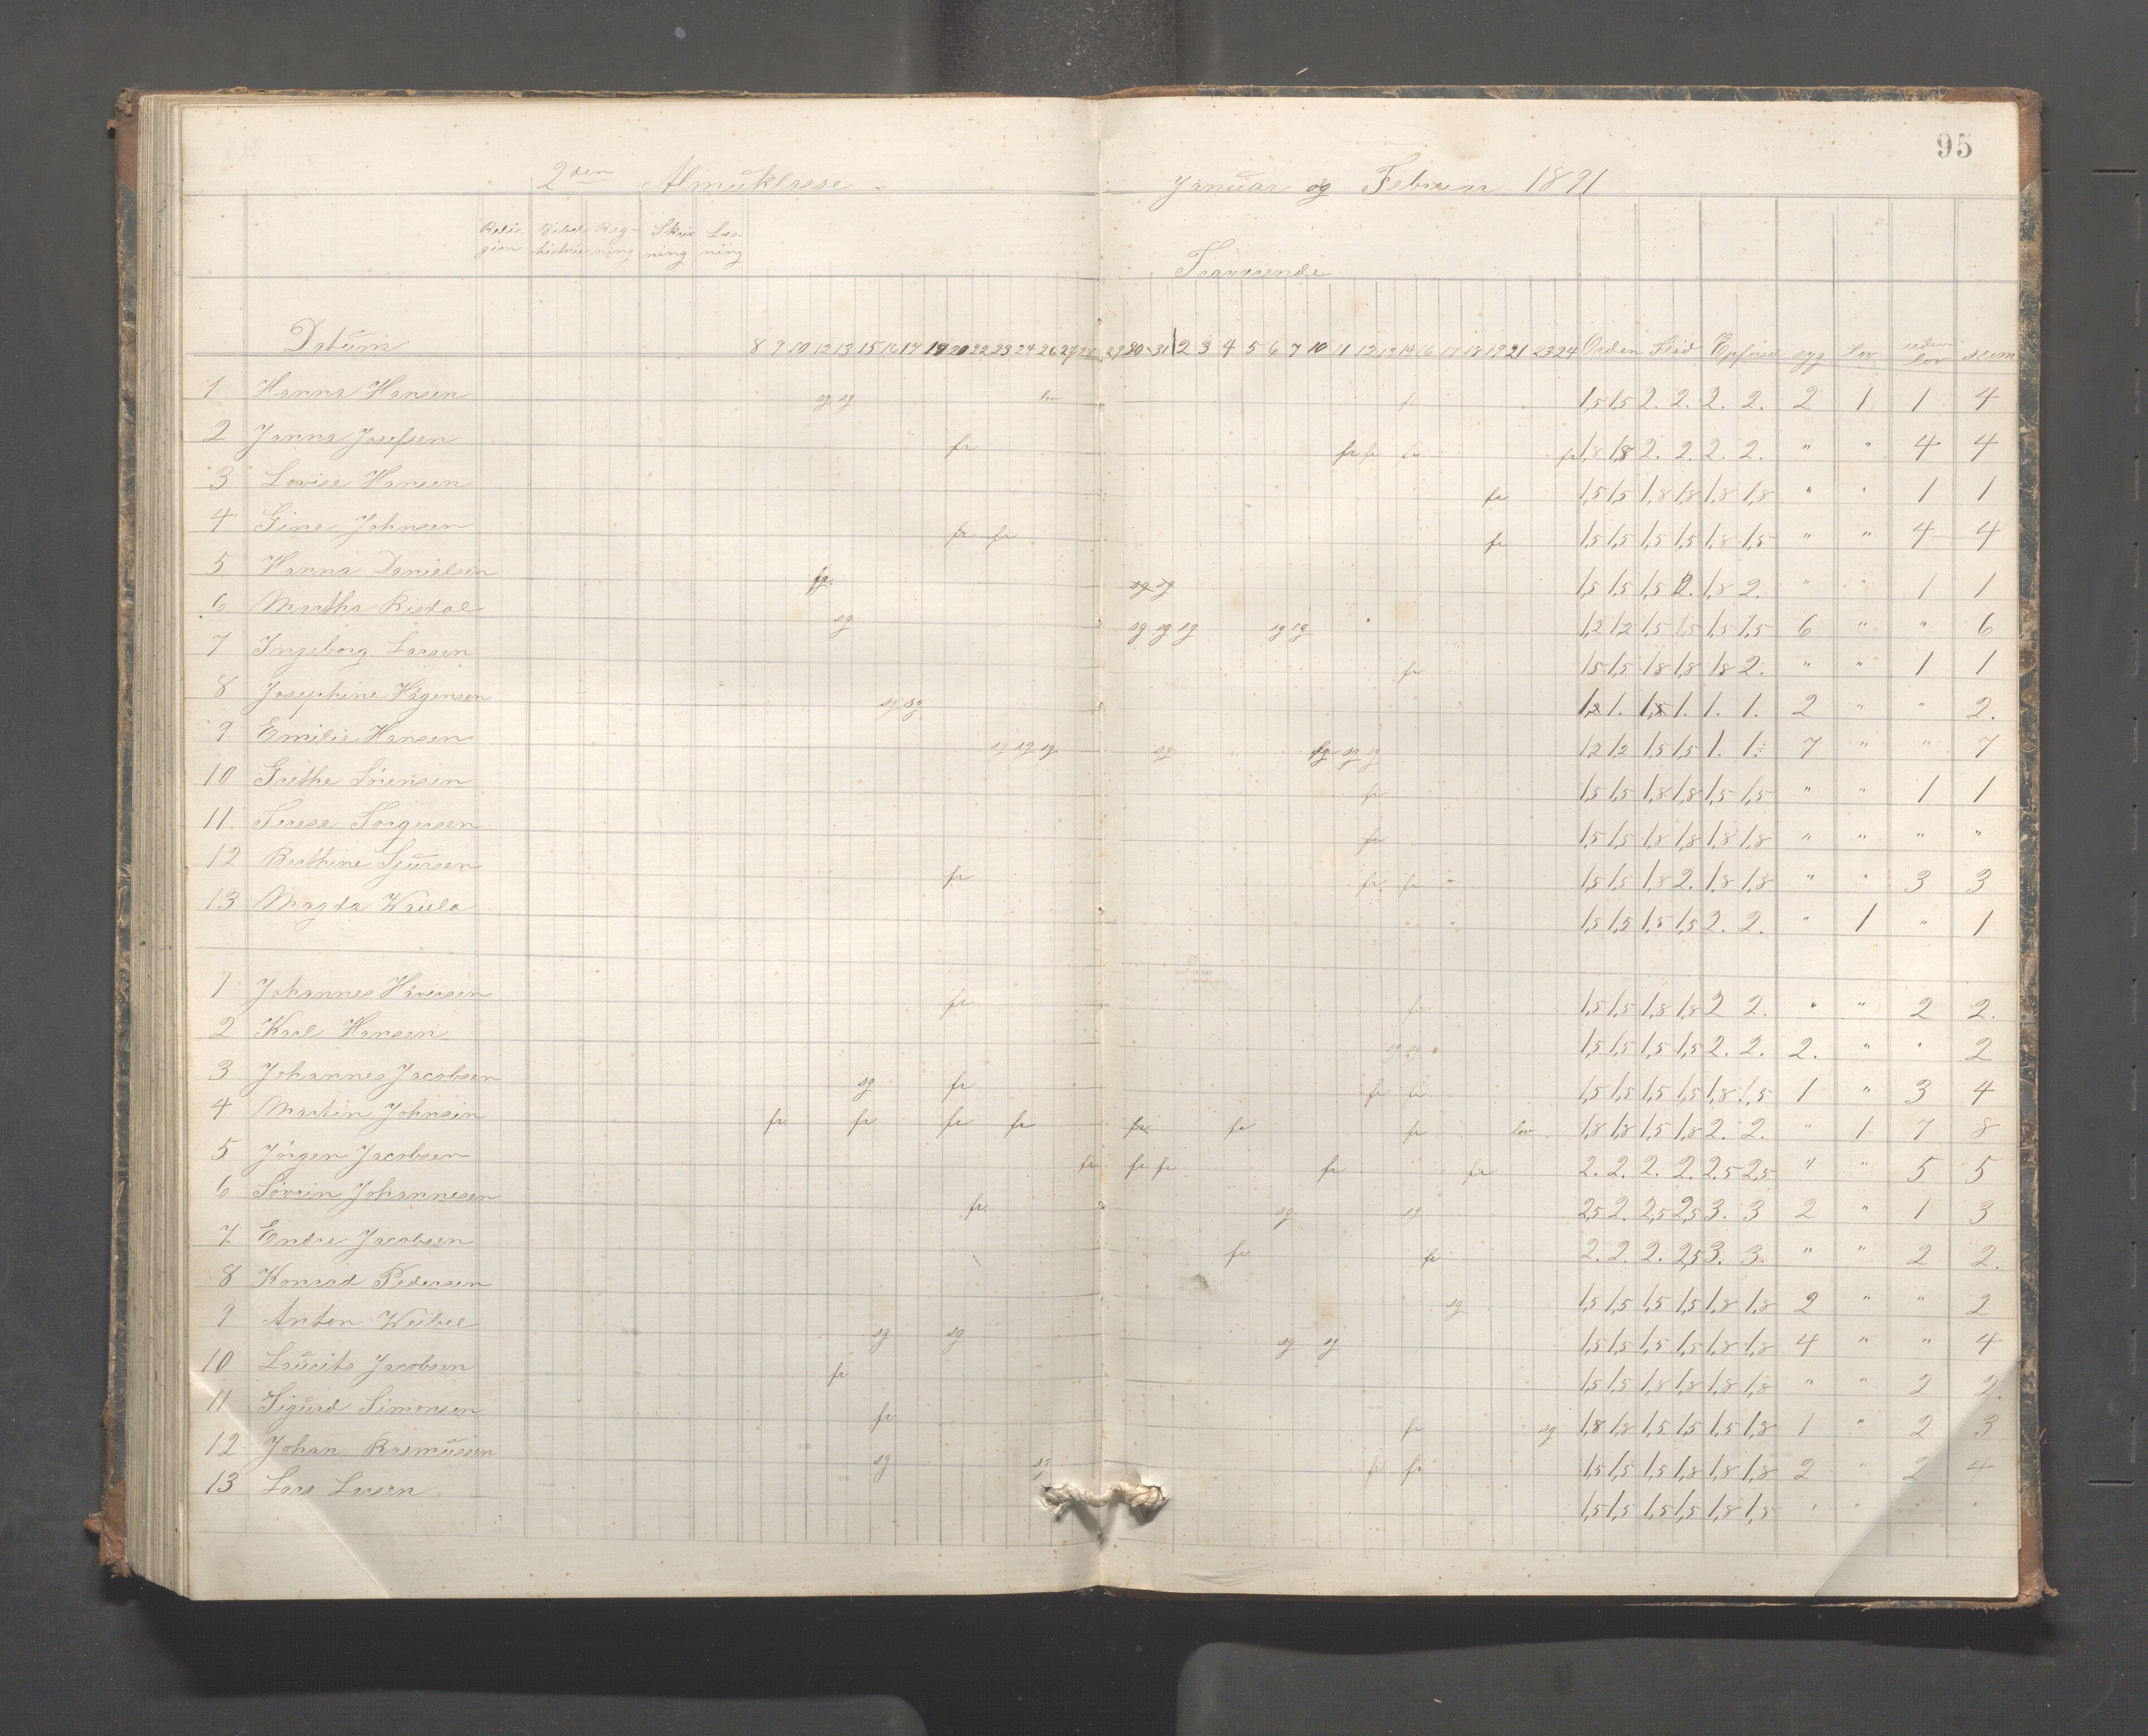 95
2den Almuklasse.
Januar og Februar 1891
Reli-gion Bibel historie Reg-ning Skriv ning Læs-ning
Fraværende
Datum 8 9 10 12 13 15 16 17 19 20 22 23 24 26 27 28 29 30 31 2 3 4 5 6 7 10 11 12 13 14 16 17 18 19 21 23 24 Orden Flid Opførsel syg lov uden lov sum
1 Hanna Hansen sg sg lov fr 1,5 1,5 2. 2. 2. 2. 2 1 1 4
2 Janna Josefsen fr fr fr fr fr 1,8 1,8 2. 2. 2. 2. " " 4 4
3 Lovise Hansen fr 1,5 1,5 1,8 1,8 1,8 1,8 " " 1 1
4 Gine Johnsen fr fr fr 1,5 1,5 1,5 1,5 1,8 1,5 " " 4 4
5 Hanna Danielsen fr. sg sg 1,5 1,5 1,5 2. 1,8 2. " " 1 1
6 Martha Risdal sg sg sg sg sg sg 1,2 1,2 1,5 1,5 1,5 1,5 6 " " 6
7 Ingeborg Larsen fr 1,5 1,5 1,8 1,8 1,8 2. " " 1 1
8 Josephine Hågensen sg sg 1,2 1. 1,5 1. 1. 1. 2 " " 2.
9 Emilie Hansen sg sg sg sg sg sg sg 1,2 1,2 1,5 1,5 1. 1. 7 " " 7
10 Grethe Sørensen fr 1,5 1,5 1,8 1,8 1,5 1,5 " " 1 1
11 Serese Torgersen fr 1,5 1,5 1,8 1,8 1,8 1,8 " " " "
12 Berthine Sjursen fr fr. fr 1,5 1,5 1,8 2. 1,8 1,8 " " 3 3
13 Magda Waula 1,5 1,5 1,5 1,5 2. 2. " 1 " 1
1 Johannes Håversen fr fr 1,5 1,5 1,8 1,8 2 2. " " 2 2.
2 Karl Hansen sg sg 1,5 1,5 1,5 1,5 2. 2. 2. " " 2
3 Johannes Jacobsen sg fr fr fr 1,5 1,5 1,5 1,5 1,8 1,5 1 " 3 4
4 Martin Johnsen fr. fr fr fr fr fr fr lov 1,8 1,8 1,5 1,8 2. 2. " 1 7 8
5 Jörgen Jacobsen fr fr fr fr fr 2. 2. 2. 2. 2,5 2,5 " " 5 5
6 Sövrin Johannesen fr. sg sg 2,5 2. 2,5 2,5 3. 3 2 " 1 3
7 Endre Jacobsen fr fr 2. 2. 2. 2,5 3. 3. " " 2 2.
8 Konrad Pedersen sg 1,5 1,5 1,5 1,5 1,8 1,8 2 " " 2
9 Anton sg sg sg sg 1,5 1,5 1,5 1,5 1,8 1,8 4 " " 4
10 Laurits Jacobsen fr 1,5 1,5 1,8 1,8 1,8 1,8 " " 2 2.
11 Sigurd Simonsen fr fr sg 1,8 1,8 1,5 1,5 1,5 1,8 1 " 2 3
12 Johan Rasmussen sg sg fr fr 1,5 1,5 1,5 1,8 1,8 1,8 2 " 2 4
13 Lars Larsen 1,5 1,5 1,5 1,5 1,8 1,5 " " " "